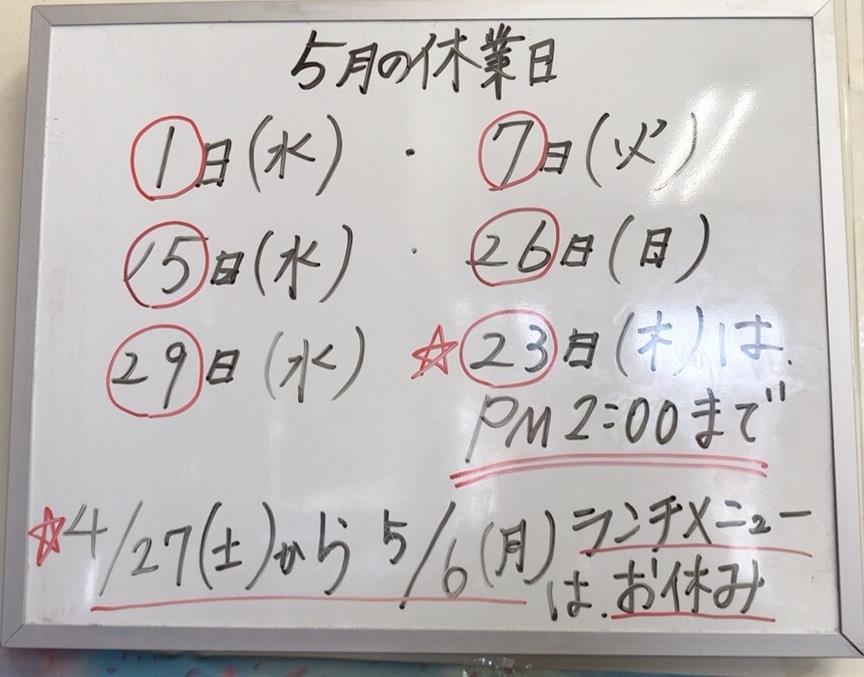 5月の休業日
1日(水) ・ 7日(火)
15日(水) ・ 26日(日)
29日(水) ☆23日(木)は、
PM2:00まで
☆4/27(土)から5/6(月)ランチメニュー
は、お休み